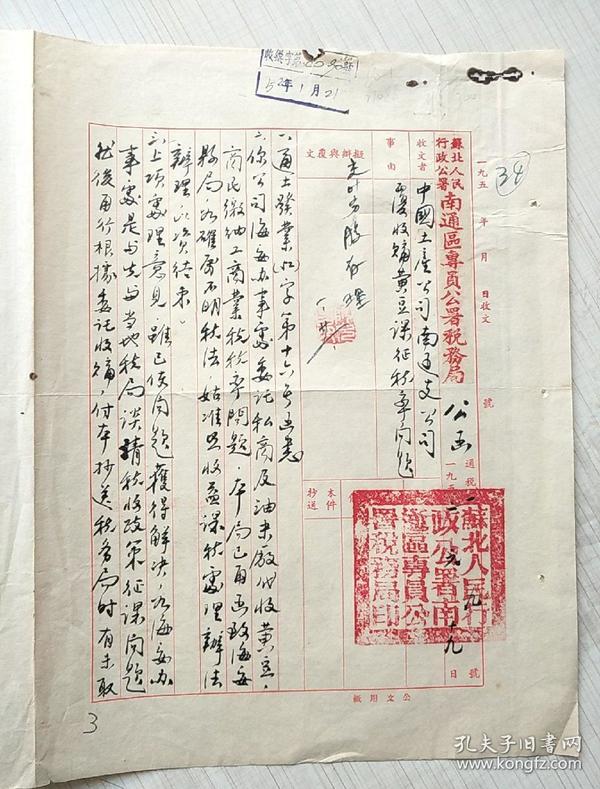 收綜字第
52年1月21
34
一九五 年 月 日收文 號
蘇北人民行政公署南通區專員公署稅務局 公函
通稅 號
一九五
九 日
收文者
中國土產公司南通支公司
事由
覆收購黃豆課征稅率問題
擬辦與覆文
本件抄送
蘇北人民行政公署南通區專員公署稅務局印
一、通土發業(江)字第十六号函悉
二、你公司海安办事處委託私商及油末廠代收黃豆，
商民繳納工商業稅稅率問題，本局已函致海安
縣局，如確屬不明稅法，姑准照收益課稅處理辦法
辦理，以資結束。
三、上項處理意見，雖已使問題獲得解決，如海安办
事處是否先与当地稅局談請稅收政策征課問題
然後再行根據委託收購，付本抄送稅务局時有未取
公文用紙
3
孔夫子旧书网
www.kongfz.com